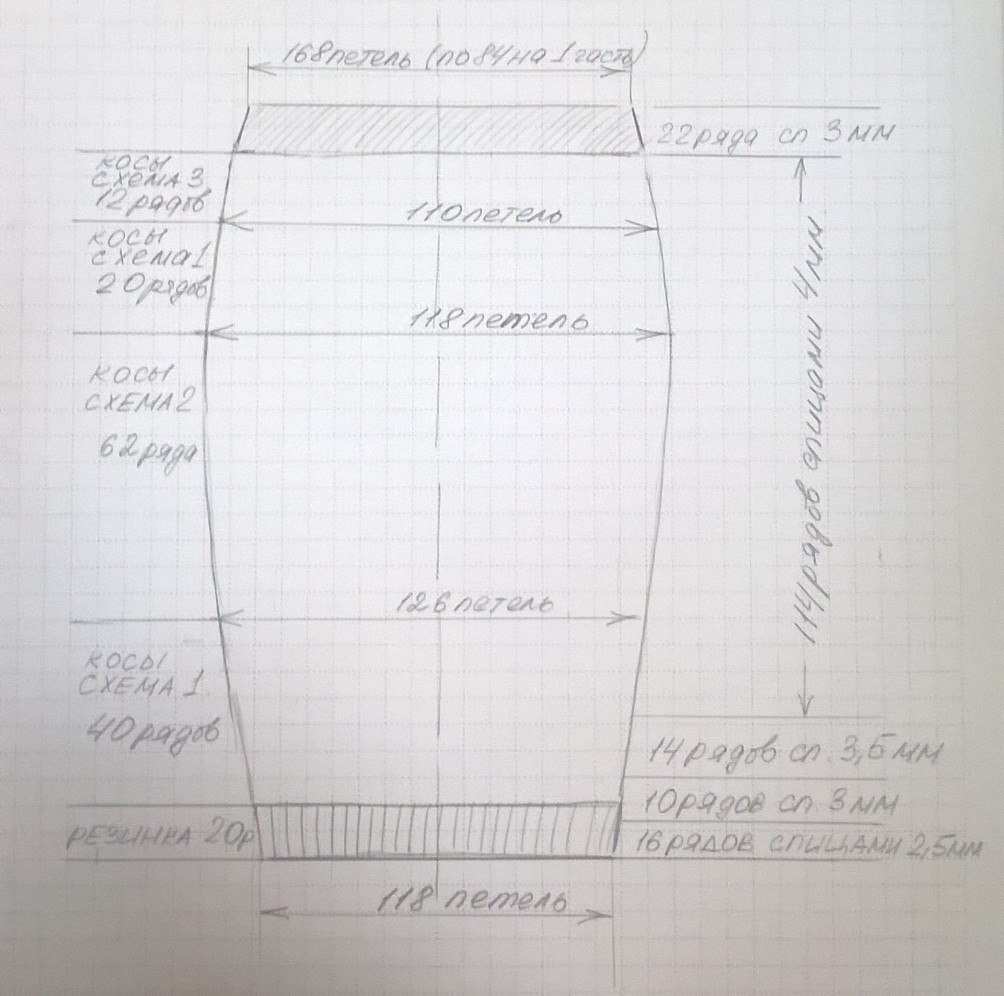 168 петель (по 84 на 1 часть)
22 ряда сп 3 мм
косы
схема 3
12 рядов
110 петель
косы
схема 1
20 рядов
118 петель
косы
схема 2
62 ряда
114 рядов спицами 4 мм
126 петель
косы
схема 1
40 рядов
14 рядов сп. 3,5 мм
10 рядов сп. 3 мм
резинка 20р
16 рядов спицами 2,5 мм
118 петель